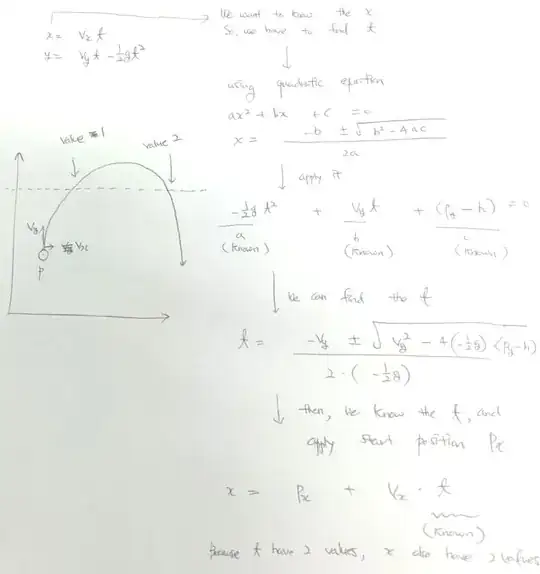 x = Vx t
y = Vy t - 1/2 g t²
We want to know the x
So, we have to find t
using quadratic equation
ax² + bx + c = 0
x = -b ± √b² - 4ac / 2a
apply it
-1/2 g t² + Vy t + (Py - h) = 0
a b c
(known) (known) (known)
We can find the t
t = -Vy ± √Vy² - 4(-1/2 g)(Py - h) / 2·(-1/2 g)
then, we know the t, and
apply start position Px
x = Px + Vx · t
(known)
Because t have 2 values, x also have 2 values
value 1
value 2
Vy
Vx
P